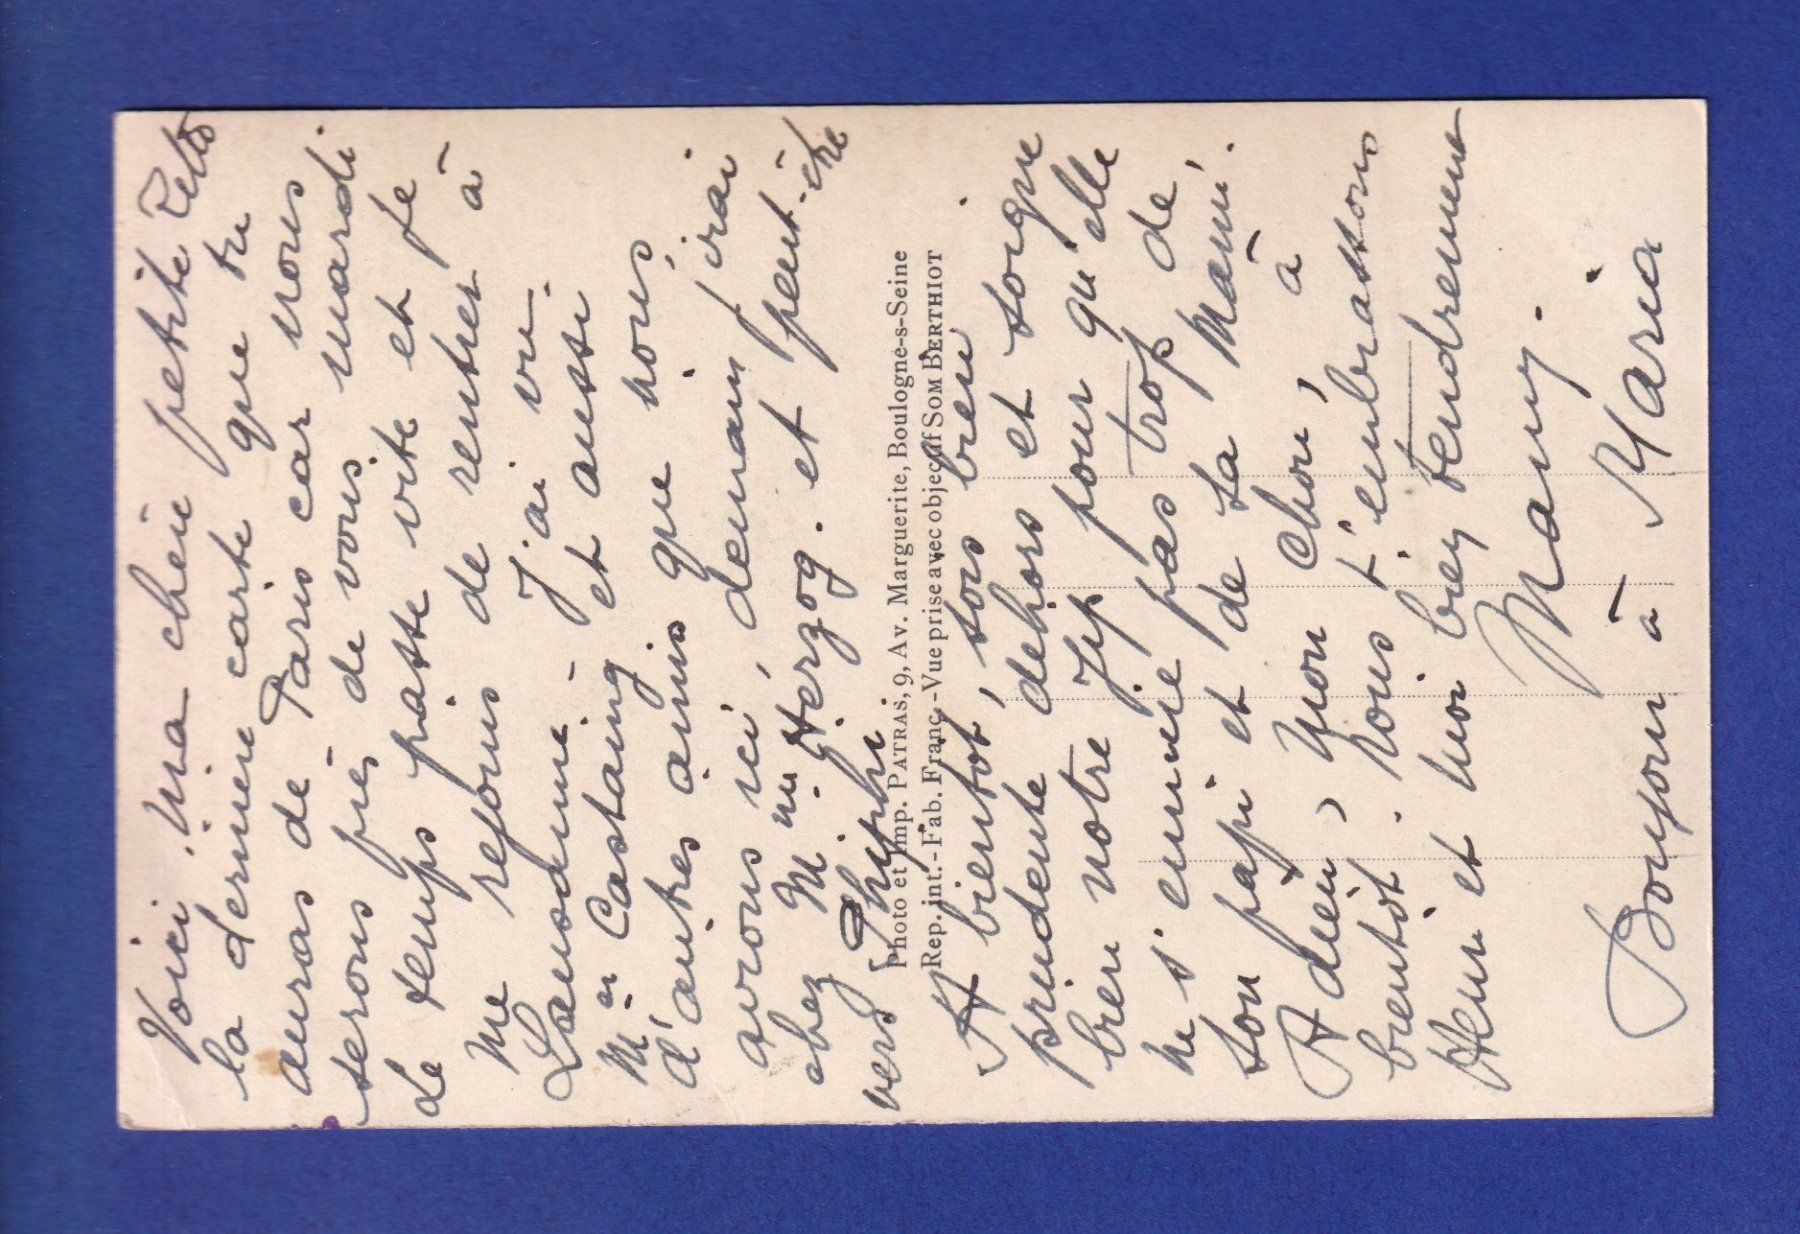 Voici, ma chère petite
la dernière carte que tu
auras de Paris car nous
serons près de vous mardi
Le temps passe vite et je
me réjouis de rentrer à
Lausanne - J'ai vu
Mr Castaing et aussi
d'autres amis que nous
avons ici, demain j'irai
chez M. Herzog. et peut-être
vers
Photo et Imp. PATRAS, 9, Av. Marguerite, Boulogne-s-Seine
Rep. int. - Fab. Franç. - Vue prise avec objectif SOM BERTHIOT
A bientôt, sois bien
prudente dehors et soigne
bien notre Jip pour qu'elle
ne s'ennuie pas trop de
son papi et de sa Mami.
Adieu, mon chou, à
bientôt. Nous t'embrassons
Henri et moi bien tendrement
Mamy.
Bonjour à Maria